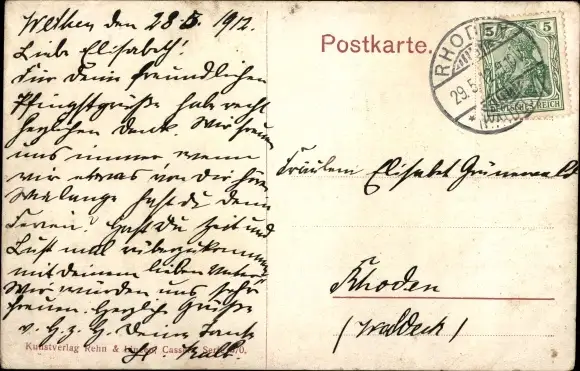 Wethen den 28 5. 1912.
Liebe Elisabeth!
Für Deine freundlichen
Pfingstgrüße habe recht
herzlichen Dank. Wir freuen
uns immer, wenn
wir etwas von Dir hören
Wie lange hast du denn
Ferien? Hast Du Zeit und
Lust mal rüberzukommen
mit deinem lieben Vater?
Wir würden uns sehr
freuen. Herzliche Grüße
v. H. z. H. Deine Tante
Kunstverlag Rehn & Cassel,
Postkarte.
RHODEN
29.5.
5 5
DEUTSCHES REICH
Fräulein Elisabet Grünewald
Rhoden
(Waldeck)